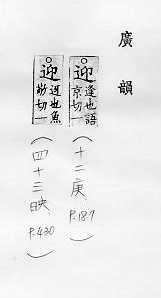 廣韻
迎 逢也語京切一
(十二庚 P.187)
迎 迓也魚敬切一
(四十三映 P.430)